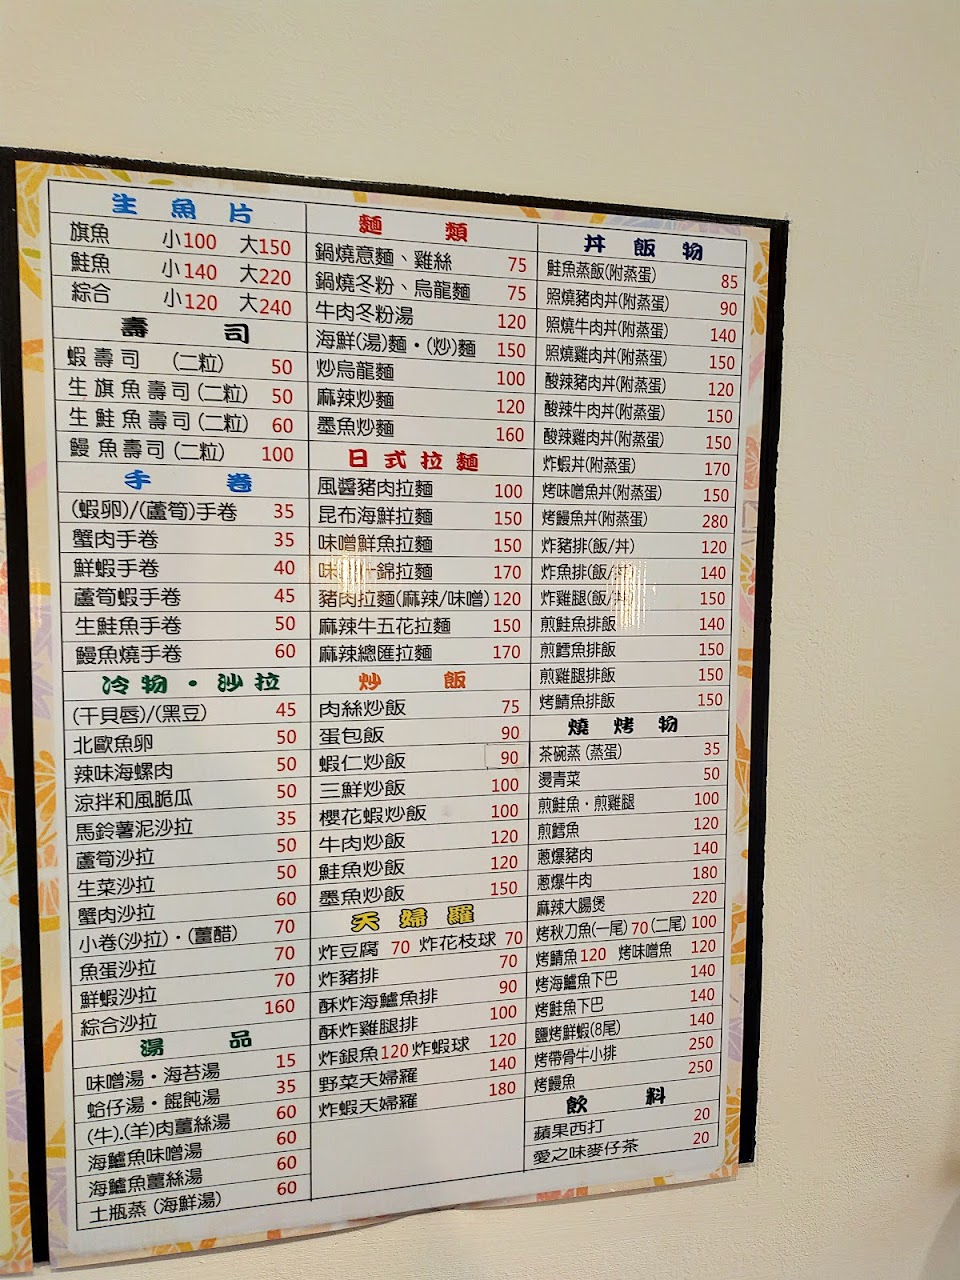 生魚片
旗魚 小100 大150
鮭魚 小140 大220
綜合 小120 大240
壽司
蝦壽司 (二粒) 50
生旗魚壽司(二粒) 50
生鮭魚壽司(二粒) 60
鰻魚壽司(二粒) 100
手卷
(蝦卵)/(蘆筍)手卷 35
蟹肉手卷 35
鮮蝦手卷 40
蘆筍蝦手卷 45
生鮭魚手卷 50
鰻魚燒手卷 60
冷物・沙拉
(干貝唇)/(黑豆) 45
北歐魚卵 50
辣味海螺肉 50
涼拌和風脆瓜 50
馬鈴薯泥沙拉 35
蘆筍沙拉 50
生菜沙拉 50
蟹肉沙拉 60
小卷(沙拉)・(薑醋) 70
魚蛋沙拉 70
鮮蝦沙拉 70
綜合沙拉 160
湯品
味噌湯・海苔湯 15
蛤仔湯・餛飩湯 35
(牛).(羊)肉薑絲湯 60
海鱸魚味噌湯 60
海鱸魚薑絲湯 60
土瓶蒸(海鮮湯) 60
麵類
鍋燒意麵、雞絲 75
鍋燒冬粉、烏龍麵 75
牛肉冬粉湯 120
海鮮(湯)麵・(炒)麵 150
炒烏龍麵 100
麻辣炒麵 120
墨魚炒麵 160
日式拉麵
風醬豬肉拉麵 100
昆布海鮮拉麵 150
味噌鮮魚拉麵 150
味 什錦拉麵 170
豬肉拉麵(麻辣/味噌) 120
麻辣牛五花拉麵 150
麻辣總匯拉麵 170
炒飯
肉絲炒飯 75
蛋包飯 90
蝦仁炒飯 90
三鮮炒飯 100
櫻花蝦炒飯 100
牛肉炒飯 120
鮭魚炒飯 120
墨魚炒飯 150
天婦羅
炸豆腐 70 炸花枝球 70
炸豬排 70
酥炸海鱸魚排 90
酥炸雞腿排 100
炸銀魚120 炸蝦球 120
野菜天婦羅 140
炸蝦天婦羅 180
丼飯物
鮭魚蒸飯(附蒸蛋) 85
照燒豬肉丼(附蒸蛋) 90
照燒牛肉丼(附蒸蛋) 140
照燒雞肉丼(附蒸蛋) 150
酸辣豬肉丼(附蒸蛋) 120
酸辣牛肉丼(附蒸蛋) 150
酸辣雞肉丼(附蒸蛋) 150
炸蝦丼(附蒸蛋) 170
烤味噌魚丼(附蒸蛋) 150
烤鰻魚丼(附蒸蛋) 280
炸豬排(飯/丼) 120
炸魚排(飯/丼) 140
炸雞腿(飯/丼) 150
煎鮭魚排飯 140
煎鱈魚排飯 150
煎雞腿排飯 150
烤鯖魚排飯 150
燒烤物
茶碗蒸(蒸蛋) 35
燙青菜 50
煎鮭魚・煎雞腿 100
煎鱈魚 120
蔥爆豬肉 140
蔥爆牛肉 180
麻辣大腸煲 220
烤秋刀魚(一尾)70(二尾) 100
烤鯖魚120 烤味噌魚 120
烤海鱸魚下巴 140
烤鮭魚下巴 140
鹽烤鮮蝦(8尾) 140
烤帶骨牛小排 250
烤鰻魚 250
飲料
蘋果西打 20
愛之味麥仔茶 20